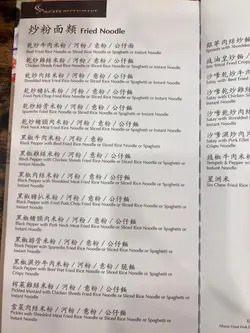 炒粉面類 Fried Noodle
乾炒牛肉米粉 / 河粉 / 意粉 / 公仔面
Beef Fried Rice Noodle or Sliced Rice Noodle or Spaghetti or Instant Noodle
乾炒雞絲米粉 / 河粉 / 意粉 / 公仔麵
Chicken Shreds Fried Rice Noodle or Sliced Rice Noodle or Spaghetti or Instant Noodle
乾炒肉絲米粉 / 河粉 / 意粉 / 公仔麵
Shredded Meat Fried Rice Noodle or Sliced Rice Noodle or Spaghetti or
Instant Noodle
乾炒豬扒米粉 / 河粉 / 意粉 / 公仔麵
Fried Pork Chop Fried Rice Noodle or Sliced Rice Noodle or Spaghetti or Instant Noodle
乾炒排骨米粉 / 河粉 / 意粉 / 公仔麵
Spareribs Fried Rice Noodle or Sliced Rice Noodle or Spaghetti or Instant Noodle
乾炒豬頸肉米粉 / 河粉 / 意粉 / 公仔麵
Pork Neck Meat Fried Rice Noodle or Sliced Rice Noodle or Spaghetti or
Instant Noodle
黑椒牛肉米粉 / 河粉 / 意粉
Black Pepper with Beef Fried Rice Noodle or Sliced Rice Noodle or Spaghetti
黑椒雞絲米粉 / 河粉 / 意粉 / 公仔麵
Black Pepper with Chicken Shreds Fried Rice Noodle or Sliced Rice Noodle or Spaghetti or
Instant Noodle
黑椒肉絲米粉 / 河粉 / 意粉 / 公仔麵
Black Pepper with Shredded Meat Fried Rice Noodle or Sliced Rice Noodle or Spaghetti or
Instant Noodle
黑椒豬扒米粉 / 河粉 / 意粉 / 公仔麵
Black Pepper with Fried Pork Chop Fried Rice Noodle or Sliced Rice Noodle or Spaghetti or
Instant Noodle
黑椒豬頸肉米粉 / 河粉 / 意粉 / 公仔麵
Black Pepper with Pork Neck Meat Fried Rice Noodle or Sliced Rice Noodle or Spaghetti or
Instant Noodle
黑椒排骨米粉 / 河粉 / 意粉 / 公仔麵
Black Pepper with Spareribs Fried Rice Noodle or Sliced Rice Noodle or Spaghetti or
Instant Noodle
黑椒濕炒牛肉米粉 / 河粉 / 意粉 / 脆麵
Black Pepper with Beef Wet Fried Rice Noodle or Sliced Rice Noodle or Spaghetti or
Crispy Noodle
榨菜雞絲米粉 / 河粉 / 意粉 / 公仔麵
Pickled Mustard with Chicken Shreds Fried Rice Noodle or Sliced Rice Noodle or Spaghetti or
Instant Noodle
雪菜肉絲米粉 / 河粉 / 意粉 / 公仔麵
Pickles with Shredded Meat Fried Rice Noodle or Sliced Rice Noodle or Spaghetti or
Instant Noodle